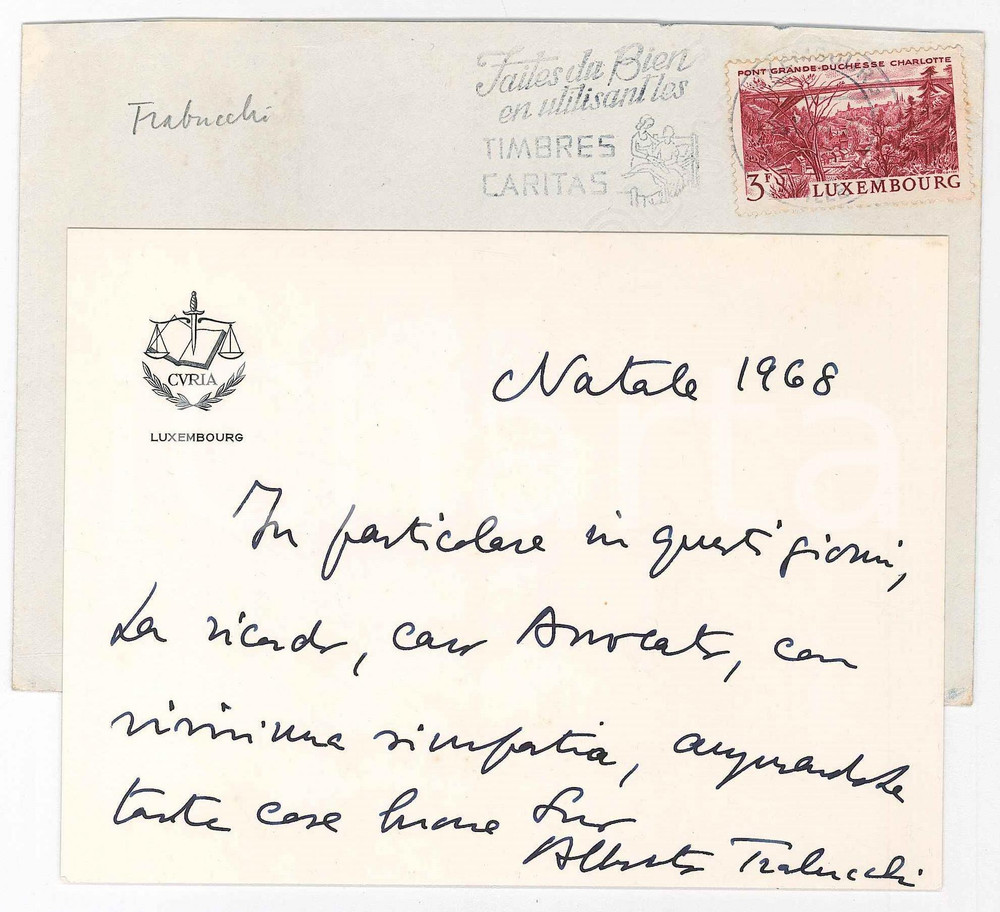 Trabucchi
Faites du Bien
en utilisant les
TIMBRES
CARITAS
PONT GRANDE-DUCHESSE CHARLOTTE
3F LUXEMBOURG
CVRIA
LUXEMBOURG
Natale 1968
In particolare in questi giorni,
La ricordo, caro Avvocato, con
vivissima simpatia, augurandole
tante cose buone Suo
Alberto Trabucchi